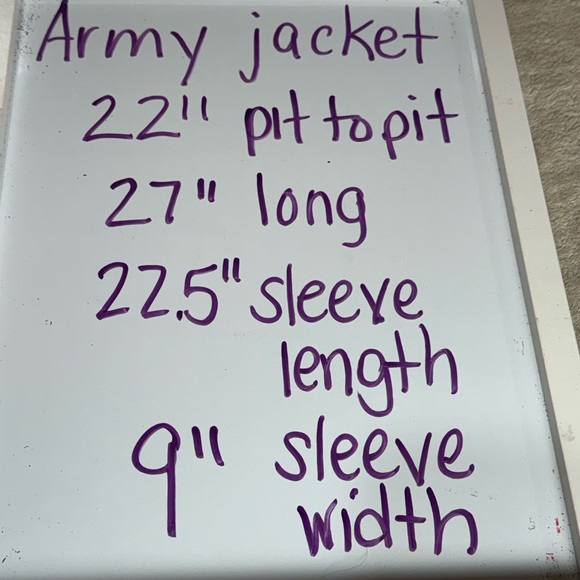 Army jacket
22" pit to pit
27" long
22.5" sleeve
length
9" sleeve
width